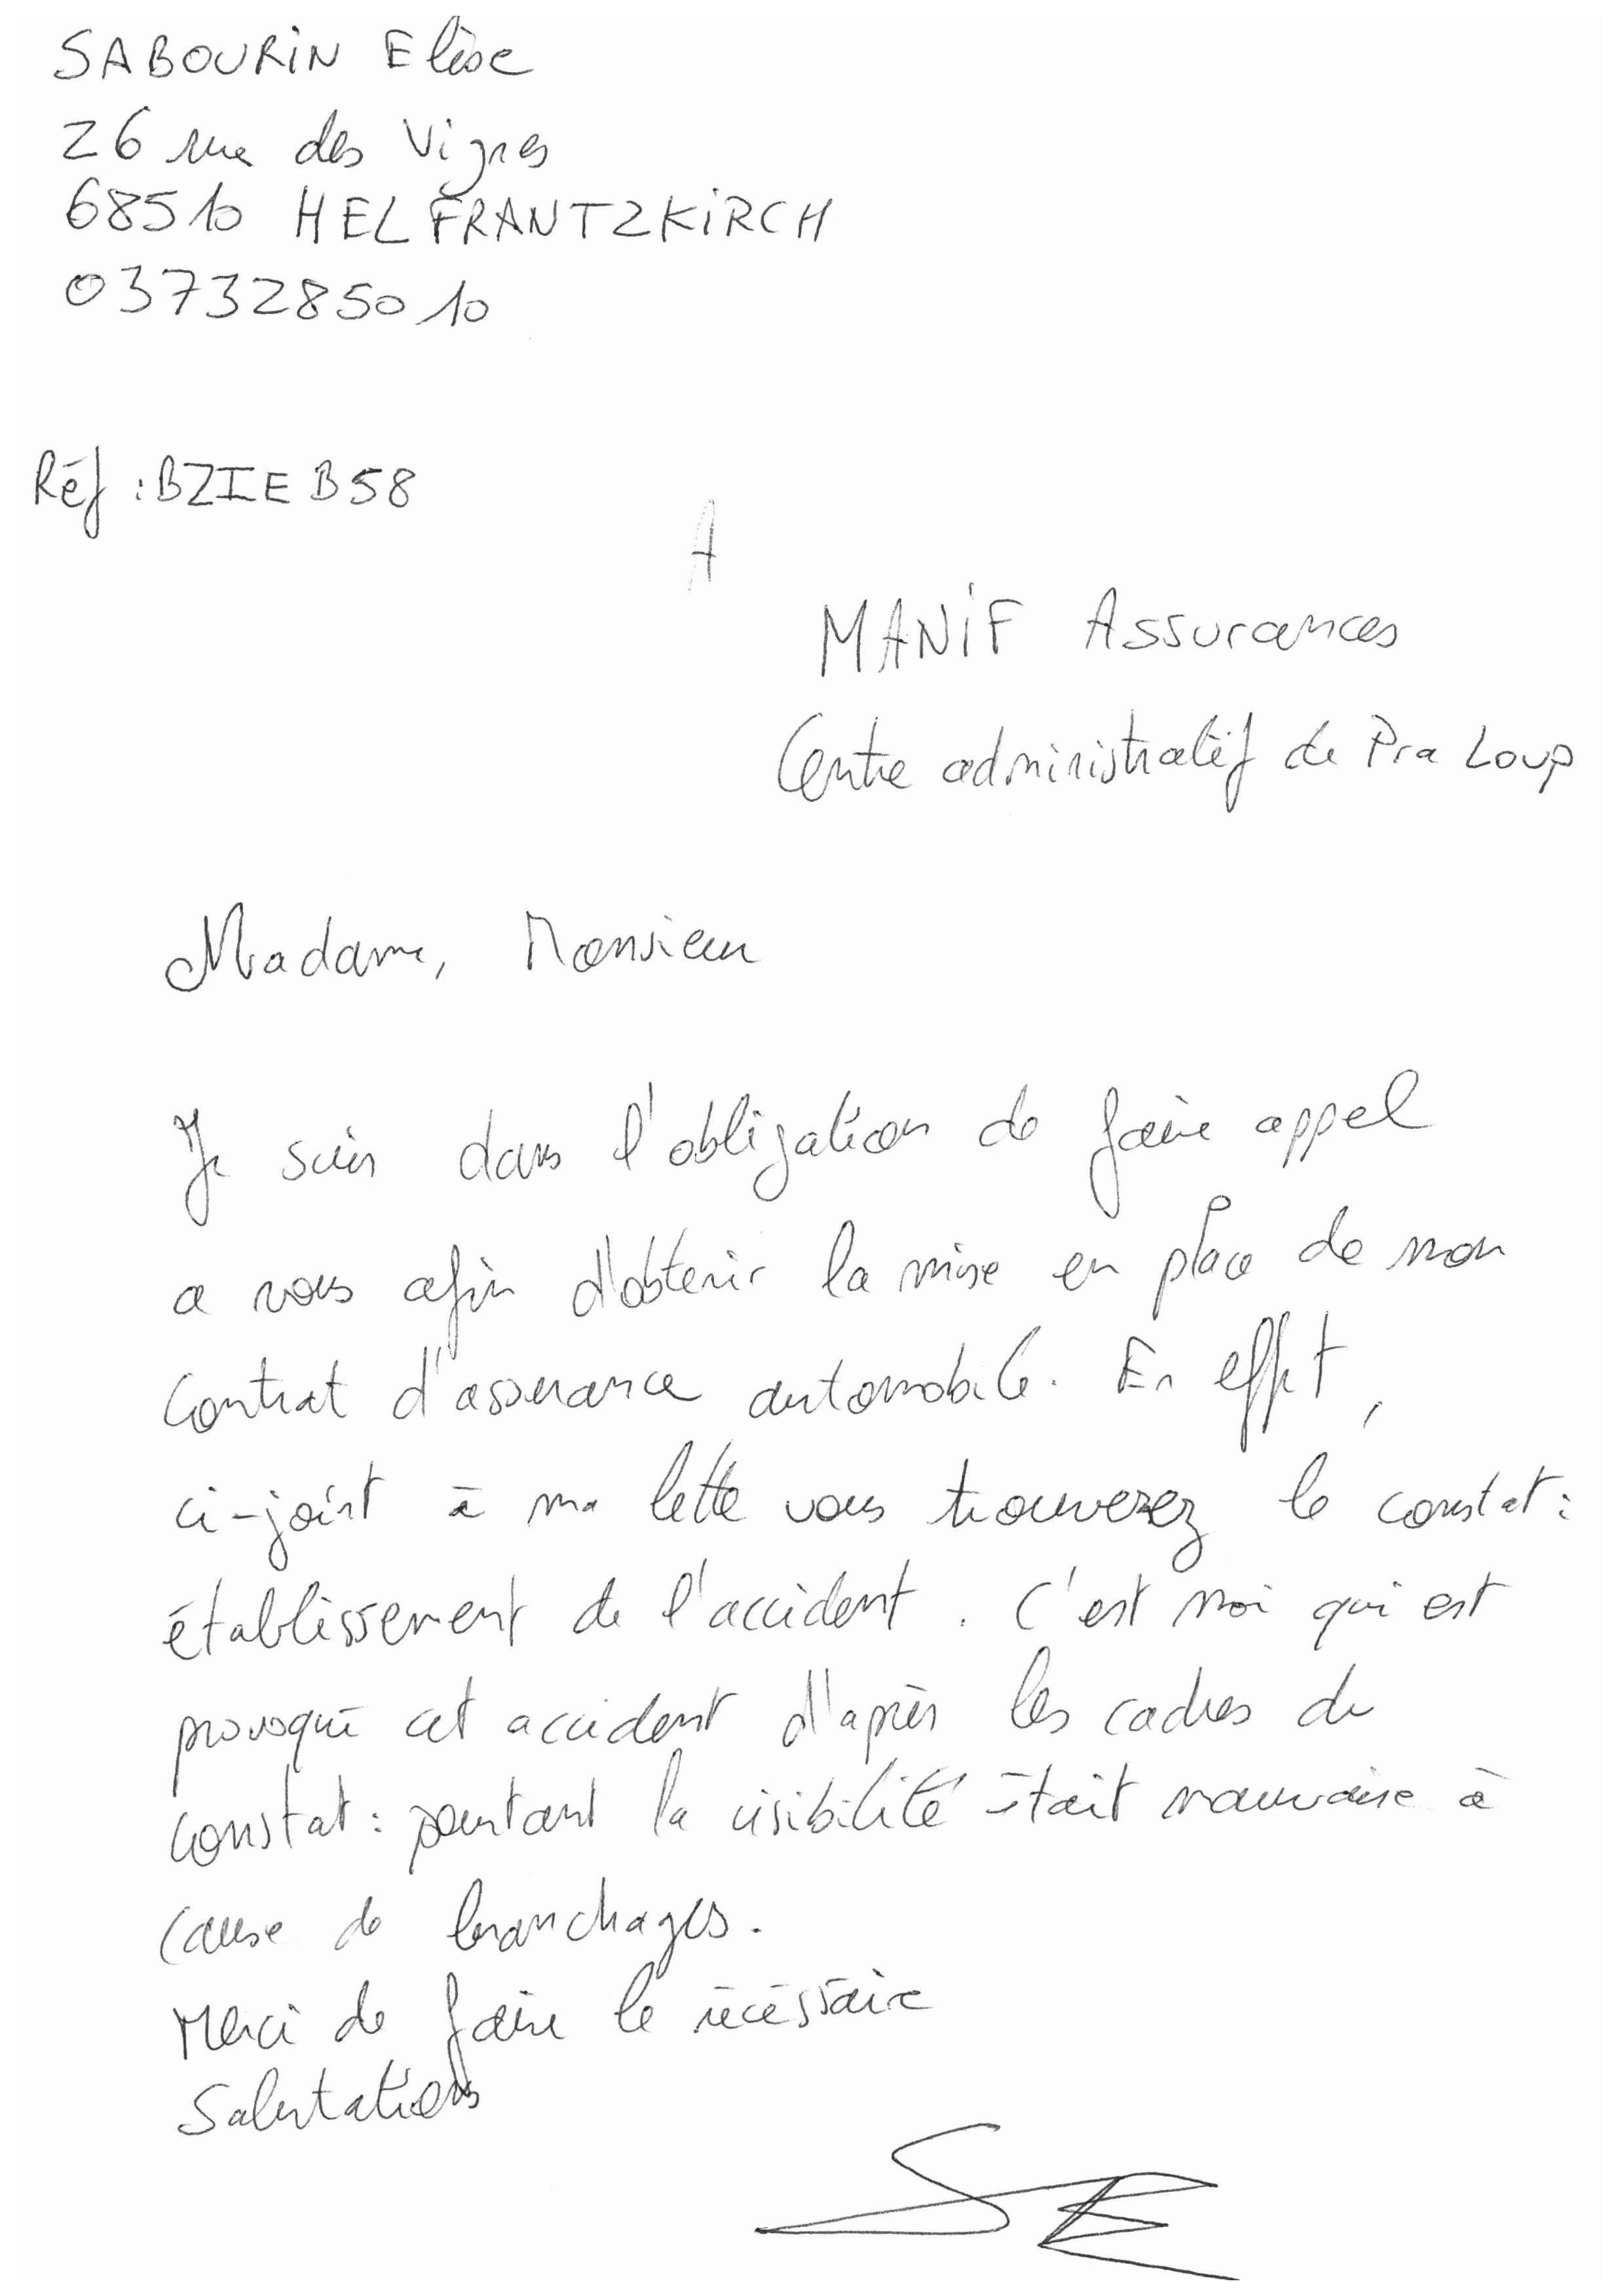 SABOURIN Elise
26 rue des Vignes
68510 HELFRANTZKIRCH
0373285010
Réf : BZIEB58
A
MANIF Assurances
Centre administratif de Pra Loup
Madame, Monsieur
Je suis dans l'obligation de faire appel
a vous afin d'obtenir la mise en place de mon
contrat d'assurance automobile. En effet,
ci-joint à ma lettre vous trouverez le constat :
établissement de l'accident. C'est moi qui est
provoqué cet accident d'après les cadres du
constat : pourtant la visibilité était mauvaise à
cause de branchages.
Merci de faire le nécéssaire
Salutations
SE